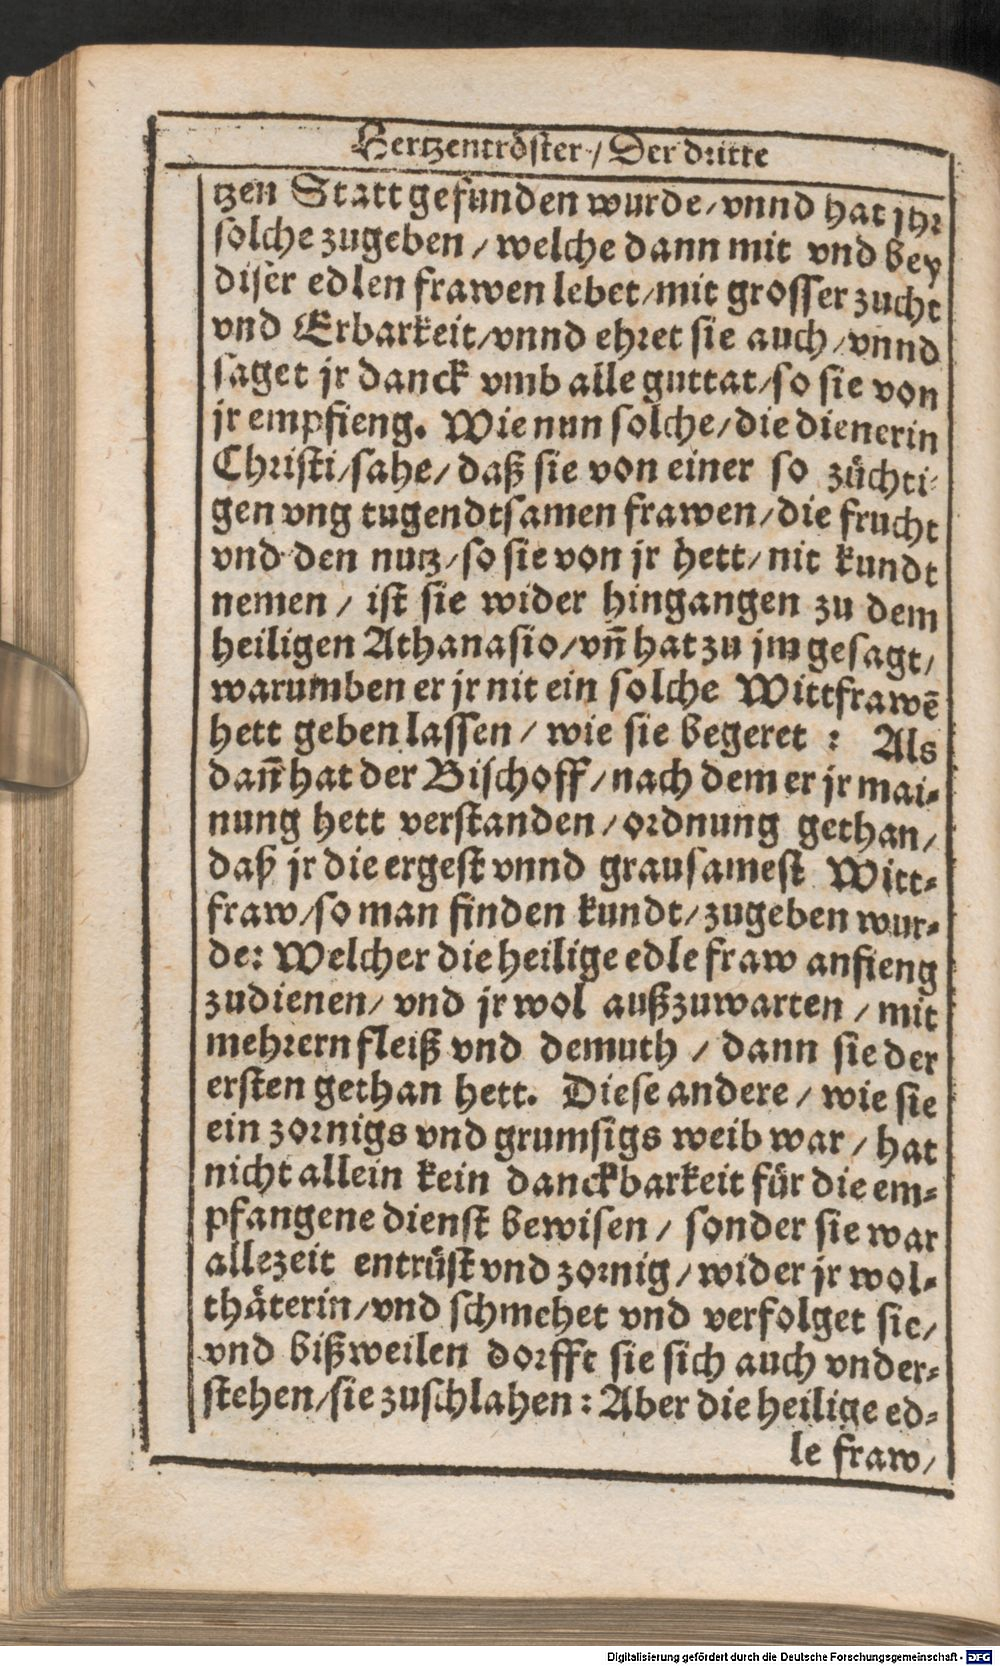 Hertzentröster / Der dritte
tzen Statt gefunden wurde / vnnd hat jhr
solche zugeben / welche dann mit vnd bey
diser edlen frawen lebet / mit grosser zucht
vnd Erbarkeit / vnnd ehret sie auch / vnnd
saget jr danck vmb alle guttat / so sie von
jr empfieng. Wie nun solche / die dienerin
Christi / sahe / daß sie von einer so züchti-
gen vng tugendtsamen frawen / die frucht
vnd den nutz / so sie von jr hett / nit kundt
nemen / ist sie wider hingangen zu dem
heiligen Athanasio / vñ hat zu jm gesagt /
warumben er jr nit ein solche Wittfrawē
hett geben lassen / wie sie begeret : Als
dañ hat der Bischoff / nach dem er jr mai-
nung hett verstanden / ordnung gethan /
daß jr die ergest vnnd grausamest Witt-
fraw / so man finden kundt / zugeben wur-
de: Welcher die heilige edle fraw anfieng
zudienen / vnd jr wol außzuwarten / mit
mehrern fleiß vnd demuth / dann sie der
ersten gethan hett. Diese andere / wie sie
ein zornigs vnd grumsigs weib war / hat
nicht allein kein danckbarkeit für die em-
pfangene dienst bewisen / sonder sie war
allezeit entrüst vnd zornig / wider jr wol-
thäterin / vnd schmehet vnd verfolget sie /
vnd bißweilen dorfft sie sich auch vnder-
stehen / sie zuschlahen : Aber die heilige ed-
le fraw /
Digitalisierung gefördert durch die Deutsche Forschungsgemeinschaft - DFG